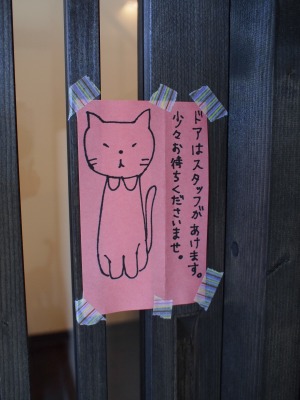 ドアはスタッフがあけます。
少々お待ちくださいませ。